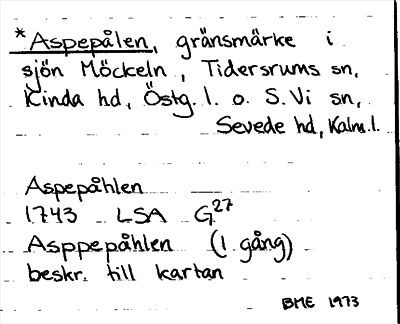 *Aspepålen, gränsmärke i
sjön Möckeln, Tidersrums sn,
Kinda hd, Östg. l. o. S. Vi sn,
Sevede hd, Kalm. l.
Aspepåhlen
1743 LSA G27
Asppepåhlen (1 gång)
beskr. till kartan
BME 1973